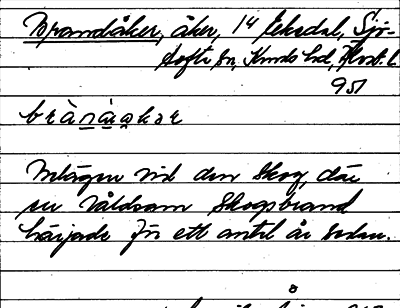 Brandåker, åker, 14 Eksdal, Sjö-
tofta sn, Kinds hd, Älvsb. l.
951
brànàꞏkər
Belägen vid den skog, där
en våldsam skogsbrand
härjade för ett antal år sedan.